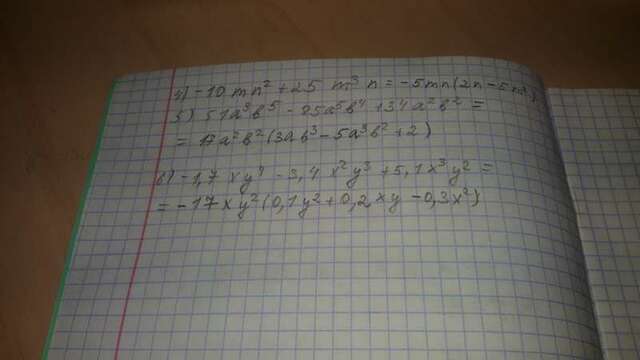 4) -10mn² + 25 m³n = -5mn(2n - 5m²)
5) 51a³b⁵ - 85a⁵b⁴ + 34a²b² =
= 17a²b²(3ab³ - 5a³b² + 2)
6) -1,7xy⁴ - 3,4x²y³ + 5,1x³y² =
= -17xy²(0,1y² + 0,2xy - 0,3x²)